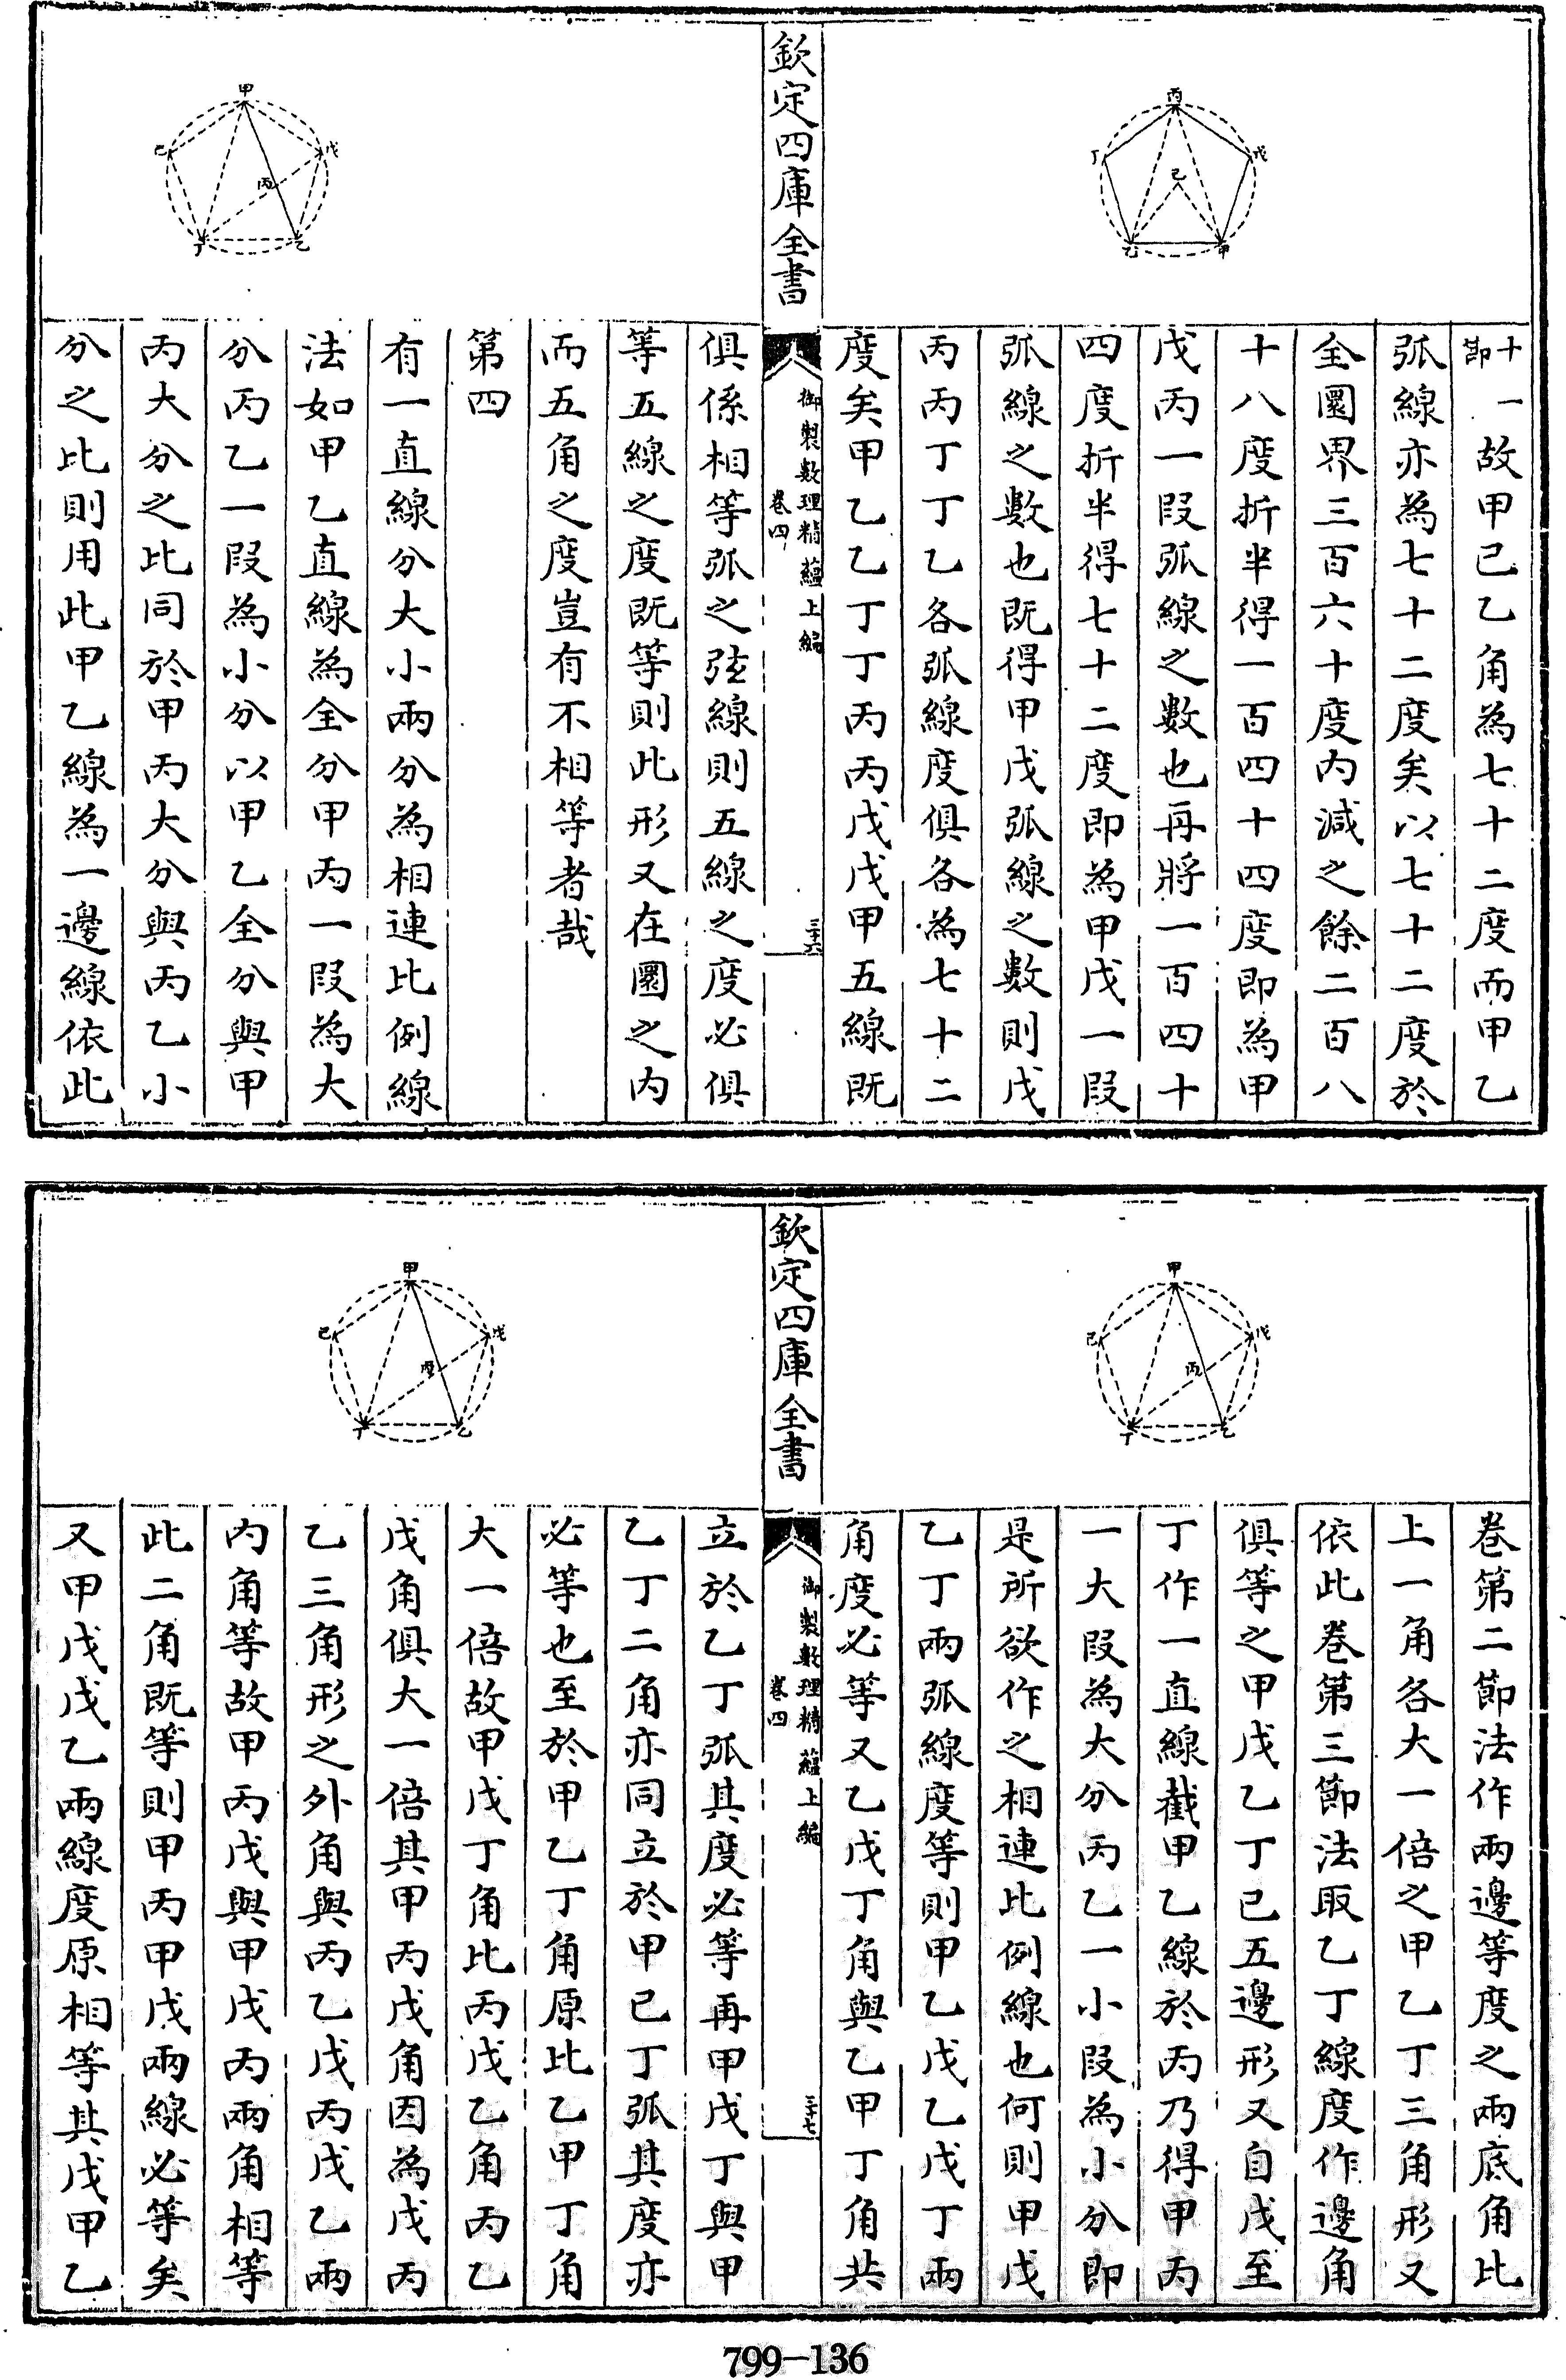 十節一故甲己乙角為七十二度而甲乙
弧線亦為七十二度矣以七十二度於
全圜界三百六十度內減之餘二百八
十八度折半得一百四十四度即為甲
戊丙一段弧線之數也再將一百四十
四度折半得七十二度即為甲戊一段
弧線之數也既得甲戊弧線之數則戊
丙丙丁丁乙各弧線度俱各為七十二
度矣甲乙乙丁丁丙丙戊戊甲五線既
欽定四庫全書
御製數理精蘊上編
卷四
三十六
俱係相等弧之弦線則五線之度必俱
等五線之度既等則此形又在圜之內
而五角之度豈有不相等者哉
第四
有一直線分大小兩分為相連比例線
法如甲乙直線為全分甲丙一段為大
分丙乙一段為小分以甲乙全分與甲
丙大分之比同於甲丙大分與丙乙小
分之比則用此甲乙線為一邊線依此
丙
戊
丁
己
乙
甲
甲
戊
己
丙
丁
乙
卷第二節法作兩邊等度之兩底角比
上一角各大一倍之甲乙丁三角形又
依此卷第三節法取乙丁線度作邊角
俱等之甲戊乙丁己五邊形又自戊至
丁作一直線截甲乙線於丙乃得甲丙
一大段為大分丙乙一小段為小分即
是所欲作之相連比例線也何則甲戊
乙丁兩弧線度等則甲乙戊乙戊丁兩
角度必等又乙戊丁角與乙甲丁角共
欽定四庫全書
御製數理精蘊上編
卷四
三十七
立於乙丁弧其度必等再甲戊丁與甲
乙丁二角亦同立於甲己丁弧其度亦
必等也至於甲乙丁角原比乙甲丁角
大一倍故甲戊丁角比丙戊乙角丙乙
戊角俱大一倍其甲丙戊角因為戊丙
乙三角形之外角與丙乙戊丙戊乙兩
內角等故甲丙戊與甲戊丙兩角相等
此二角既等則甲丙甲戊兩線必等矣
又甲戊戊乙兩線度原相等其戊甲乙
甲
戊
己
丙
丁
乙
甲
戊
己
丙
丁
乙
799-136